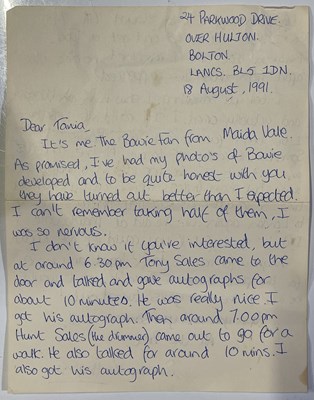 24 PARKWOOD DRIVE.
OVER HULTON.
BOLTON.
LANCS. BL5 1DN.
18 August, 1991.
Dear Tania,
It's me the Bowie Fan from Maida Vale.
As promised, I've had my photo's of Bowie
developed and to be quite honest with you
they have turned out better than I expected.
I can't remember taking half of them, I
was so nervous.
I don't know if you're interested, but
at around 6.30pm Tony Sales came to the
door and talked and gave autographs for
about 10 minutes. He was really nice I
got his autograph. Then around 7.00pm
Hunt Sales (the drummer) came out to go for a
walk. He also talked for around 10 mins. I
also got his autograph.